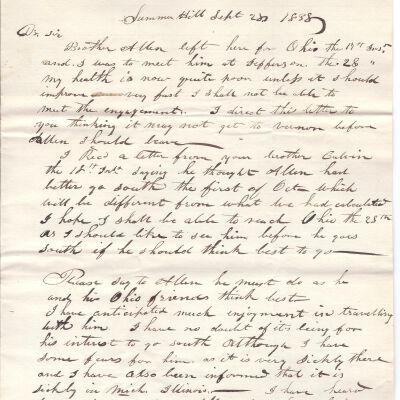 Summer Hill Sept 2d 1838
Dr. Sir
Brother Allen left here for Ohio the 19th Inst.
and I was to meet him at Jefferson the 28 "
my health is now quite poor unless it should
improve very fast I shall not be able to
meet the engagement. I direct this letter to
you thinking it may not get to Vernon before
Allen should leave
I Recd a letter from your brother Calvin
the 18th Inst. saying he thought Allen had
better go south the first of Octr which
will be different from what we had calculated
I hope I shall be able to reach Ohio the 28th
as I should like to see him before he goes
south if he should think best to go
Please say to Allen he must do as he
and his Ohio friends think best
I have anticipated much enjoyment in travelling
with him I have no doubt of its being for
his interest to go south although I have
some fears for him as it is very sickly there
and I have also been informed that it is
sickly in Mich. Illinois. I have heard